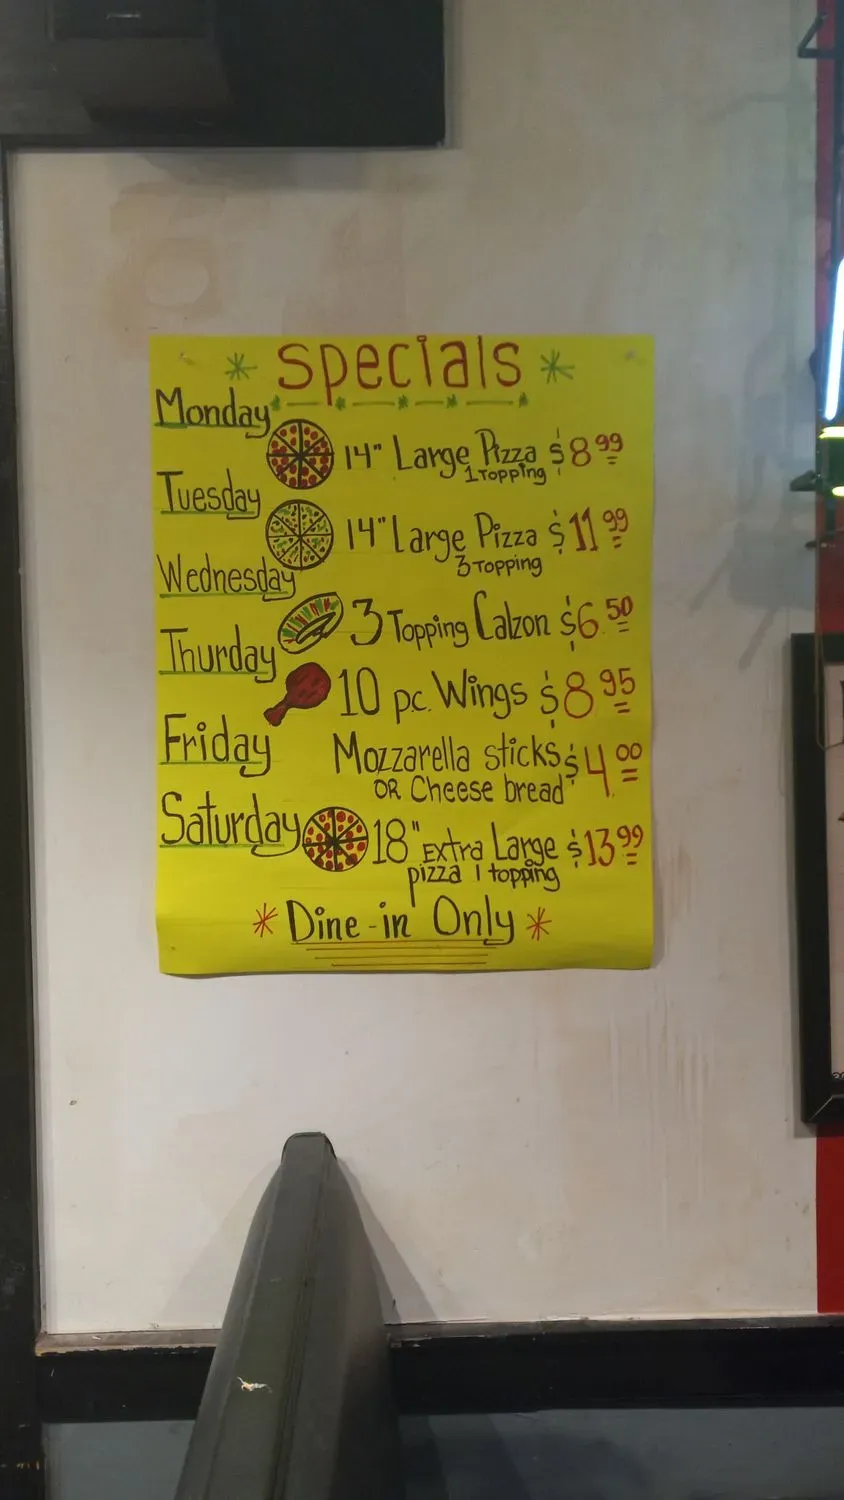 * Specials *
Monday
14" Large Pizza $8.99
1 Topping
Tuesday
14" Large Pizza $11.99
3 Topping
Wednesday
3 Topping Calzon $6.50
Thurday
10 p.c. Wings $8.95
Friday
Mozzarella sticks $4.00
OR Cheese bread
Saturday
18" Extra Large $13.99
pizza 1 topping
* Dine-in Only *